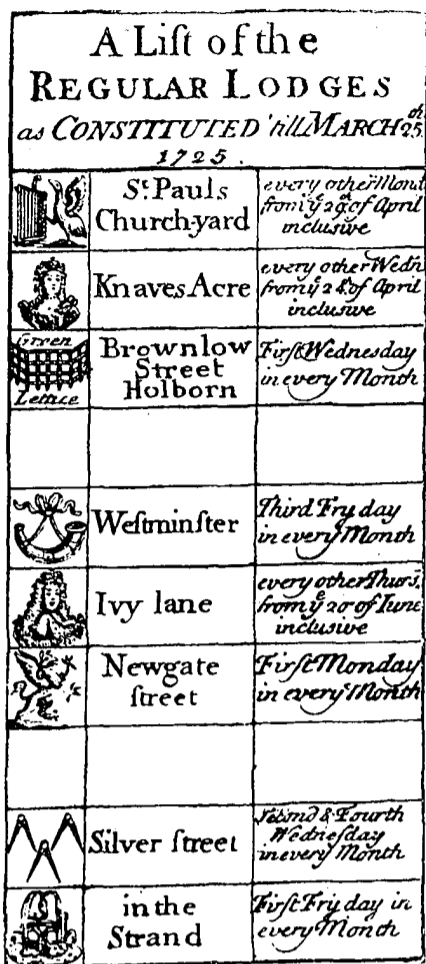 A Liſt of the
REGULAR LODGES
as CONSTITUTED 'till MARCH 25th
1725.
St. Pauls
Church-yard
every other Mond
from ye 29th of April
inclusive
Knaves Acre
every other Wedn
from ye 28 of April
inclusive
Green
Lettice
Brownlow
Street
Holborn
Firſt Wednesday
in every Month
Weſtminſter
Third Fryday
in every Month
Ivy lane
every other Thurs.
from ye 20 of Iune
inclusive
Newgate
ſtreet
Firſt Monday
in every Month
Silver ſtreet
second & Fourth
Wedneſday
in every Month
in the
Strand
Firſt Fryday in
every Month